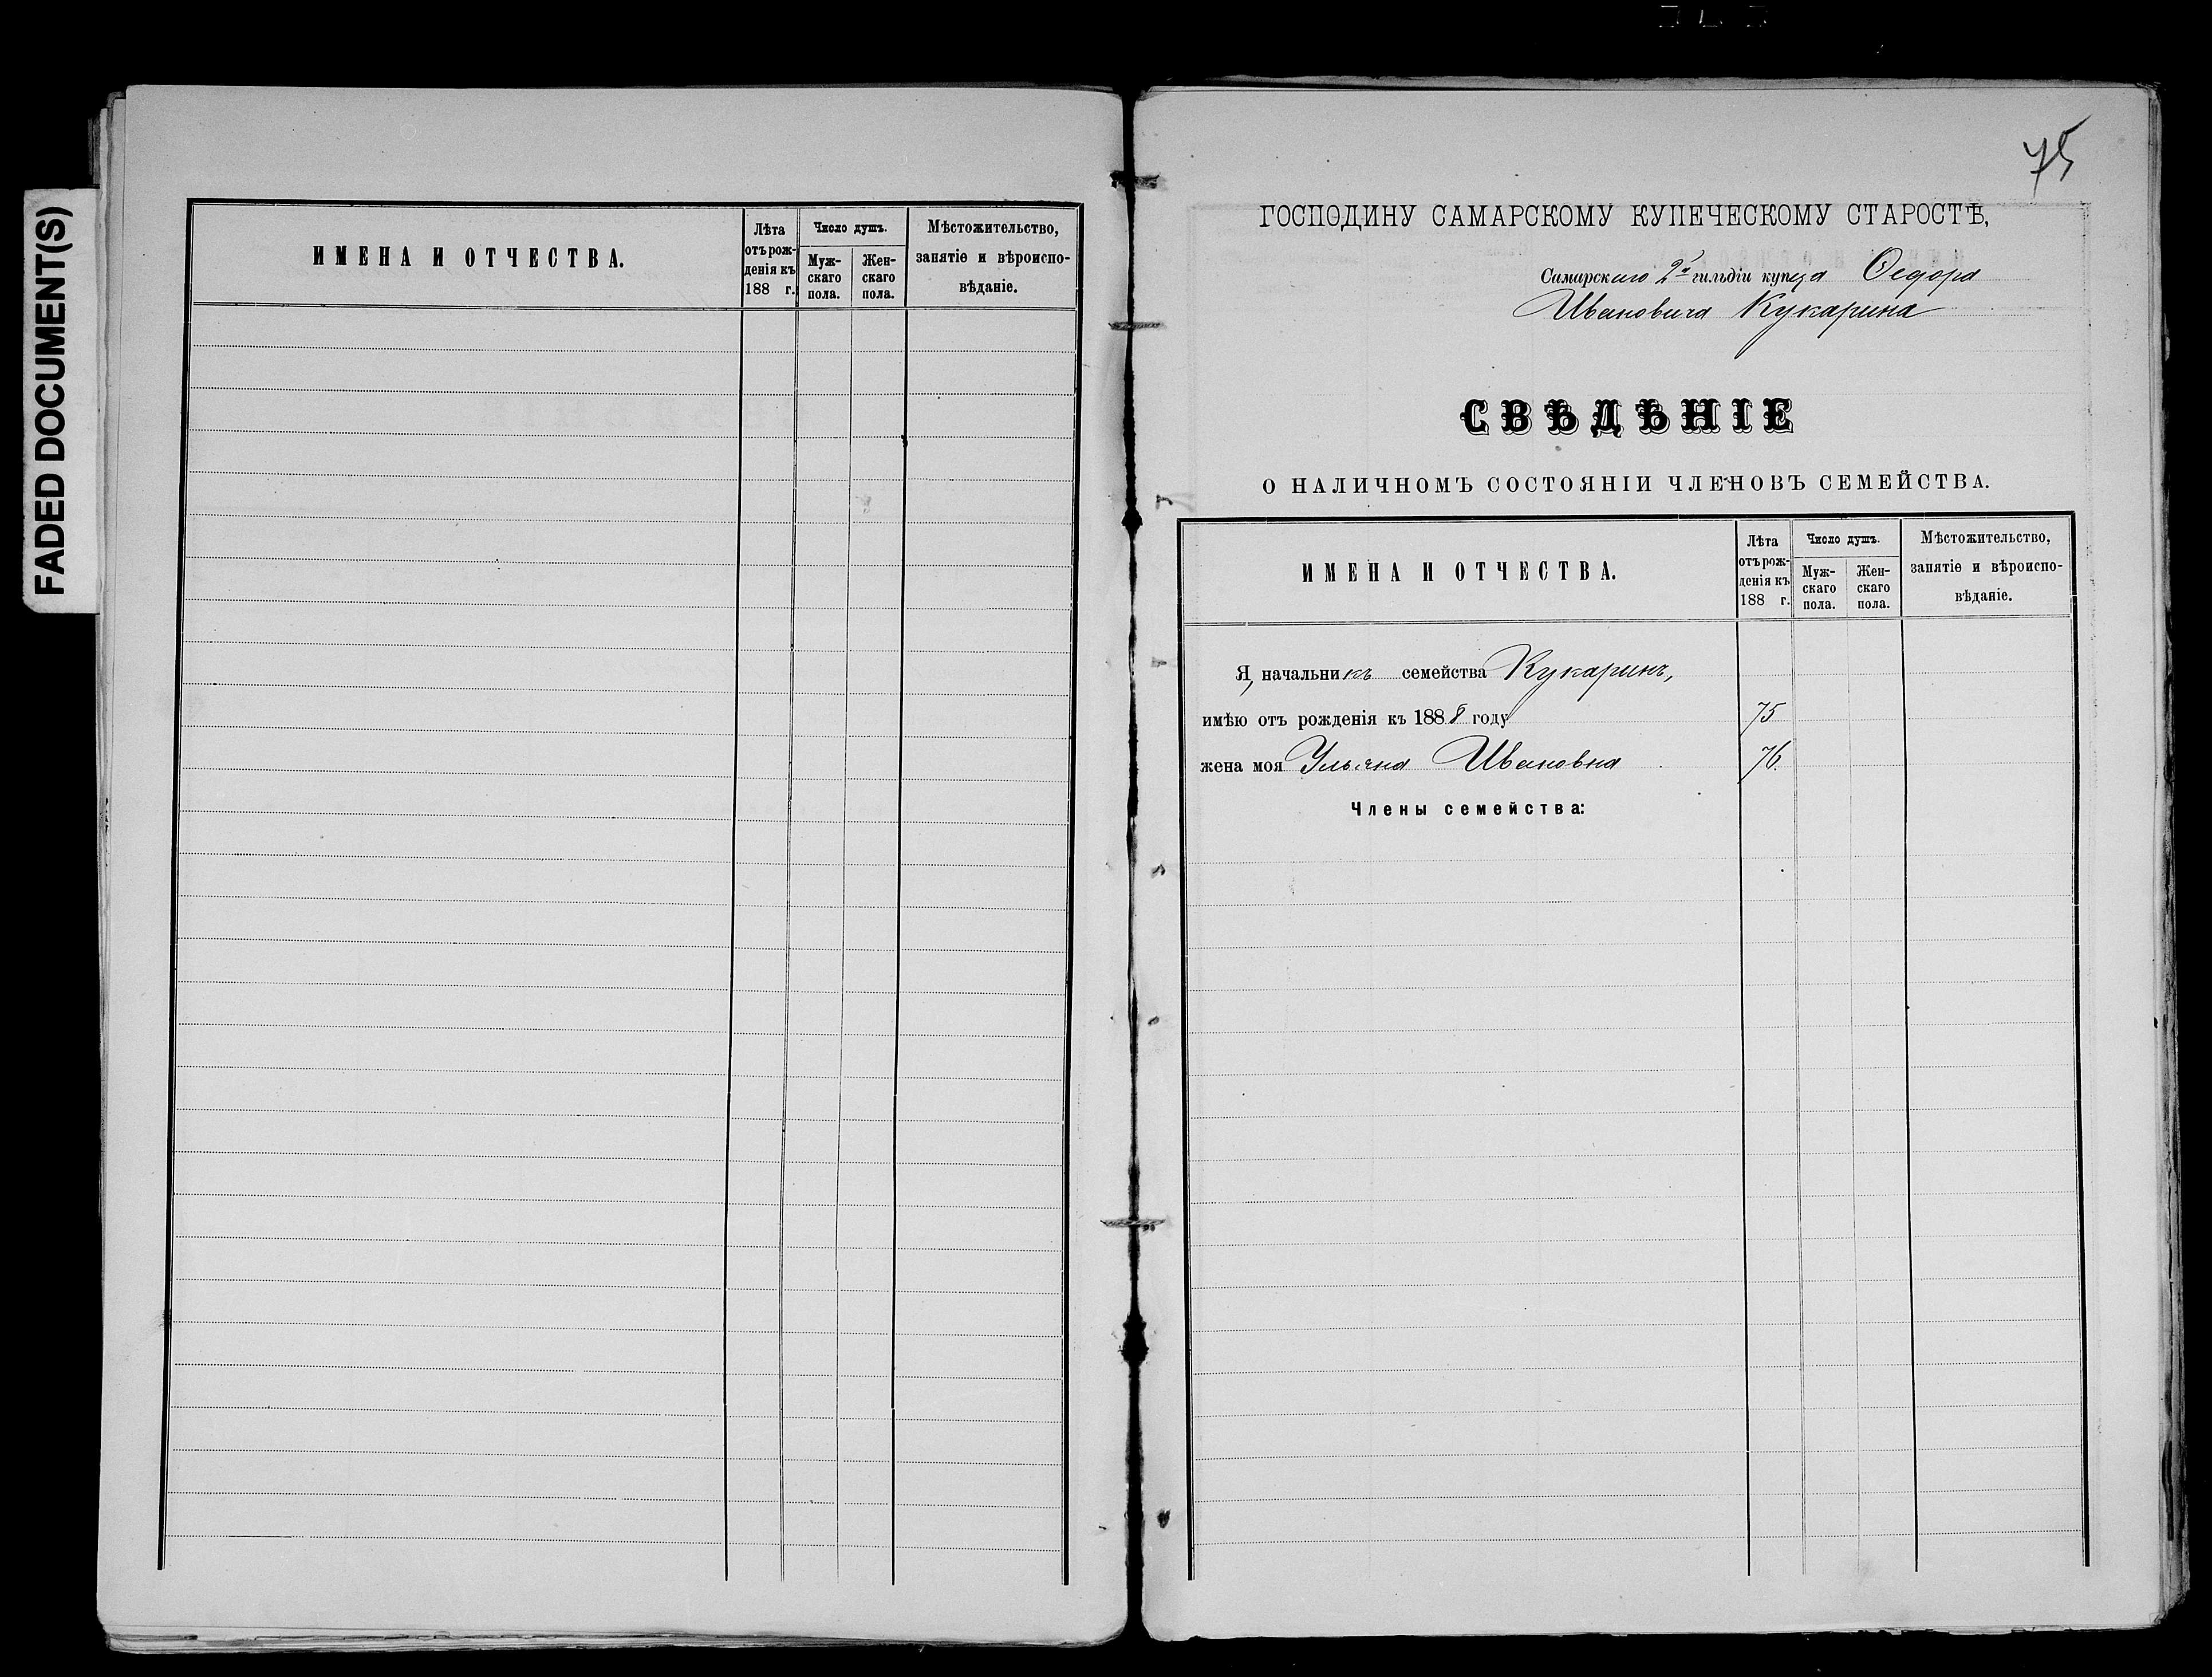 FADED DOCUMENT(S)
ИМЕНА И ОТЧЕСТВА.
Лѣта
отъ рож-
денія къ
188 г.
Число душъ.
Муж-
скаго
пола.
Жен-
скаго
пола.
Мѣстожительство,
занятіе и вѣроиспо-
вѣданіе.
75
ГОСПОДИНУ САМАРСКОМУ КУПЕЧЕСКОМУ СТАРОСТѢ,
Самарскаго 2й гильдіи купца Ѳедора
Ивановича Кукарина
СВѢДѢНІЕ
О НАЛИЧНОМЪ СОСТОЯНІИ ЧЛЕНОВЪ СЕМЕЙСТВА.
ИМЕНА И ОТЧЕСТВА.
Лѣта
отъ рож-
денія къ
188 г.
Число душъ.
Муж-
скаго
пола.
Жен-
скаго
пола.
Мѣстожительство,
занятіе и вѣроиспо-
вѣданіе.
Я, начальникъ семейства Кукаринъ,
имѣю отъ рожденія къ 1888 году 75
жена моя Ульяна Ивановна 76.
Члены семейства: